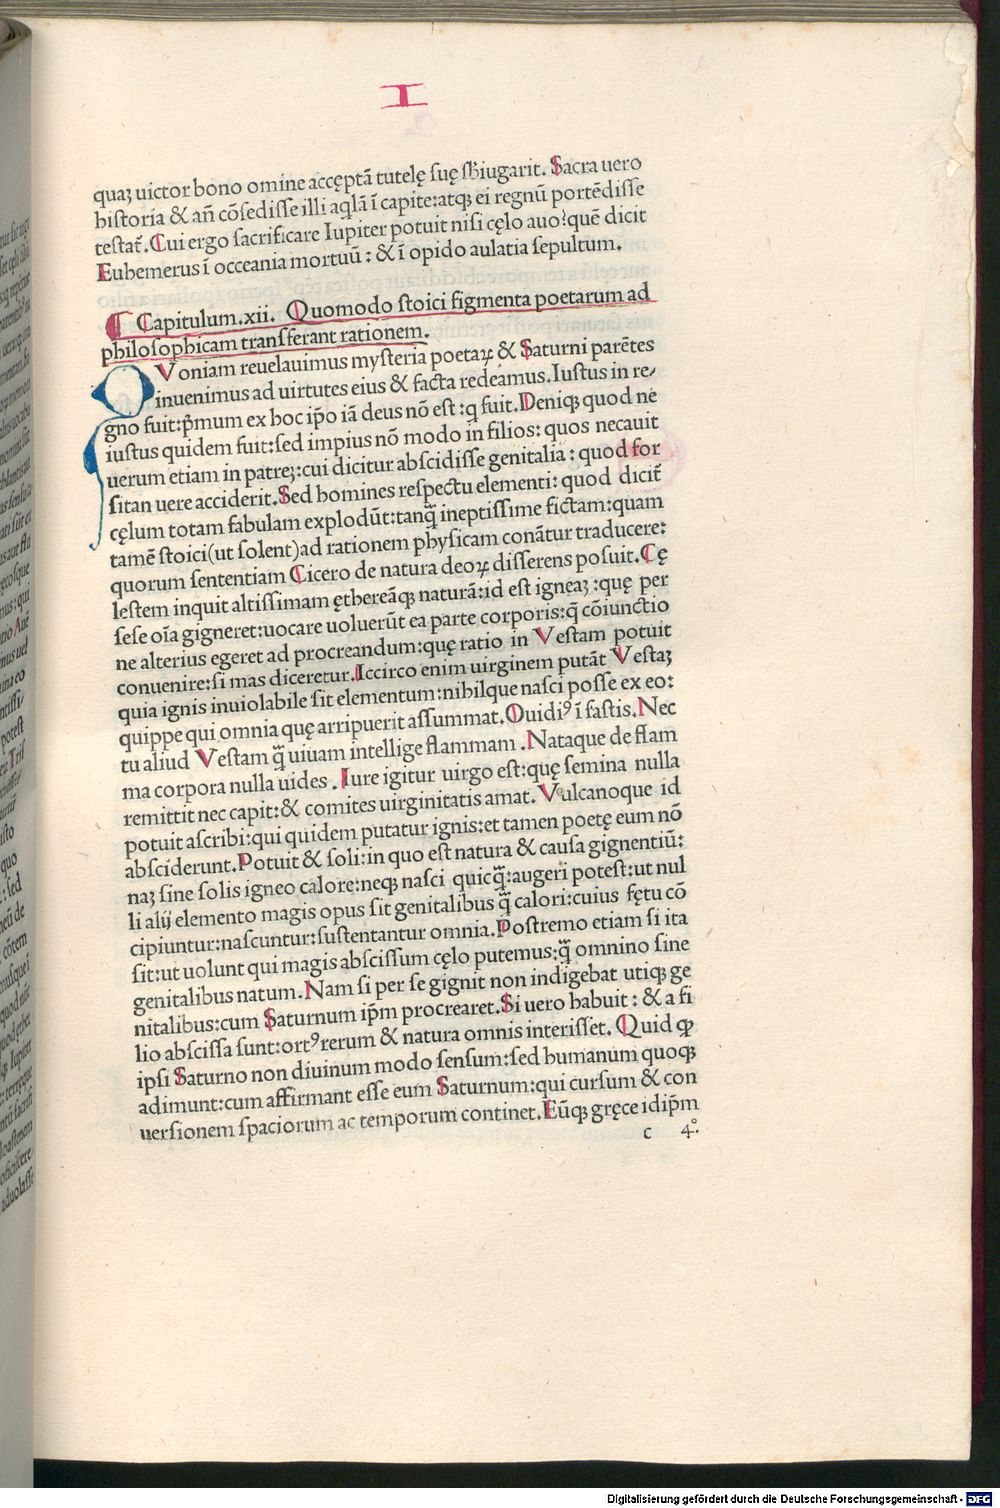 I
quaꝫ uictor bono omine accęptā tutelę suę sƀiugarit. Sacra uero
historia & añ cōsedisse illi aqlā ī capite:atqꝫ ei regnū portēdisse
testat̄. Cui ergo sacrificare Iupiter potuit nisi cęlo auo?quē dicit
Eubemerus ī occeania mortuū: & ī opido aulatia sepultum.
Capitulum.xii. Quomodo stoici figmenta poetarum ad
philosophicam transferant rationem.
QVoniam reuelauimus mysteria poetaꝝ & Saturni parētes
inuenimus ad uirtutes eius & facta redeamus.Iustus in re/
gno fuit:p̄mum ex hoc ip̄o iā deus nō est:q fuit.Deniqꝫ quod ne
iustus quidem fuit:sed impius nō modo in filios: quos necauit
uerum etiam in patreꝫ:cui dicitur abscidisse genitalia: quod for
sitan uere acciderit.Sed homines respectu elementi: quod dicit̄
cęlum totam fabulam explodūt:tanq̄ ineptissime fictam:quam
tamē stoici(ut solent)ad rationem physicam conātur traducere:
quorum sententiam Cicero de natura deoꝝ disserens posuit.Cę
lestem inquit altissimam ętbereāqꝫ naturā:id est igneaꝫ:quę per
sese oīa gigneret:uocare uoluerūt ea parte corporis:q̄ cōiunctio
ne alterius egeret ad procreandum:quę ratio in Vestam potuit
conuenire:si mas diceretur.Iccirco enim uirginem putāt Vestaꝫ
quia ignis inuiolabile sit elementum:nihilque nasci posse ex eo:
quippe qui omnia quę arripuerit assummat.Ouidiꝰ ī fastis.Nec
tu aliud Vestam q̄ uiuam intellige flammam.Nataque de flam
ma corpora nulla uides.Iure igitur uirgo est:quę semina nulla
remittit nec capit:& comites uirginitatis amat.Vulcanoque id
potuit ascribi:qui quidem putatur ignis:et tamen poetę eum nō
absciderunt.Potuit & soli:in quo est natura & causa gignentiū:
naꝫ sine solis igneo calore:neqꝫ nasci quicq̄:augeri potest:ut nul
li alij elemento magis opus sit genitalibus q̄ calori:cuius fętu cō
cipiuntur:nascuntur:sustentantur omnia.Postremo etiam si ita
sit:ut uolunt qui magis abscissum cęlo putemus:q̄ omnino sine
genitalibus natum.Nam si per se gignit non indigebat utiqꝫ ge
nitalibus:cum Saturnum ip̄m procrearet.Si uero habuit: & a fi
lio abscissa sunt:ortꝰ rerum & natura omnis interisset. Quid ꝙ
ipsi Saturno non diuinum modo sensum:sed humanum quoqꝫ
adimunt:cum affirmant esse eum Saturnum:qui cursum & con
uersionem spaciorum ac temporum continet.Eūqꝫ gręce id ip̄m
c 4°.
Digitalisierung gefördert durch die Deutsche Forschungsgemeinschaft - DFG